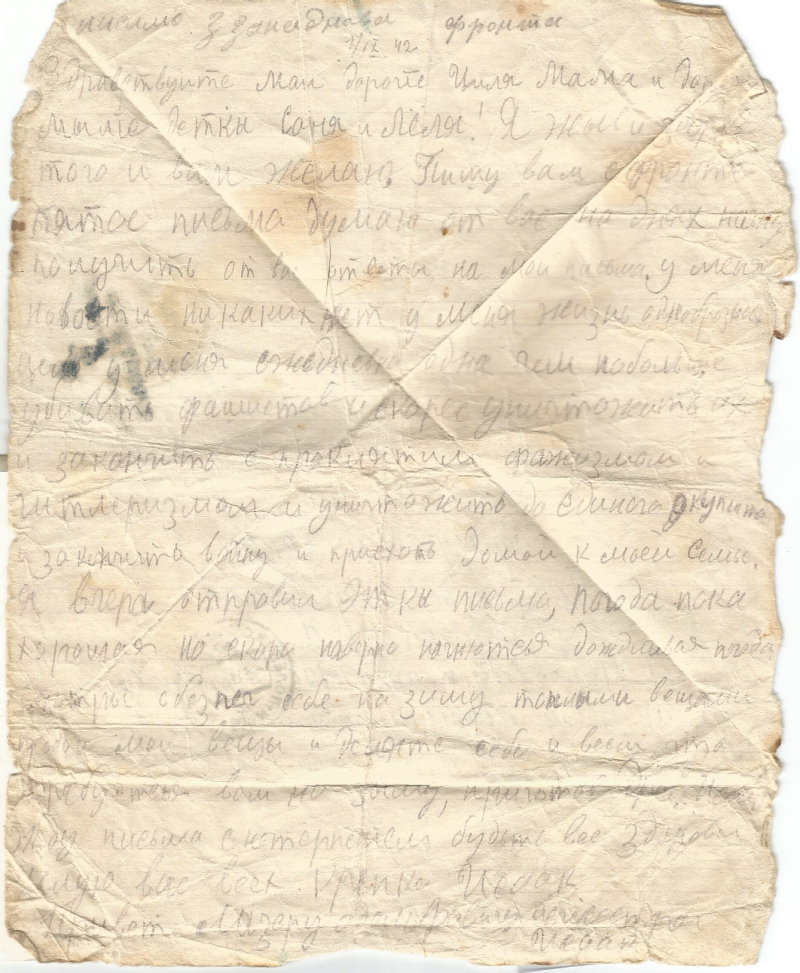 письмо З западнова фронта
1/IX 42
Здравствуите маи дороге Циля Мама и
мыле детки Соня и Леля! Я жыв и
того и вам желаю, Пишу вам с фронта
пятое письма думаю от вас на днях
получить от вас ответы на мои письма, у меня
новости никаких нет у меня жизнь
цель у меня ежедневно одна чем побольше
убивать фашистав и скорее уничтожать их
и закончить с проклятим фажизмом и
гитлеризмом и уничтожить до единого окупанта
закончить войну и приехать домой к моей семье.
Я вчера отправил Эткы письма, погода пока
хорошая но скора наверно начнютья дождливая погода
себе на зиму теплыми вещами
мои вещы и себе и весь
вам на зиму,
жду письма с нетерпением будьте все здоровы
целую вас всех крепка Исаак
Привет
Исаак